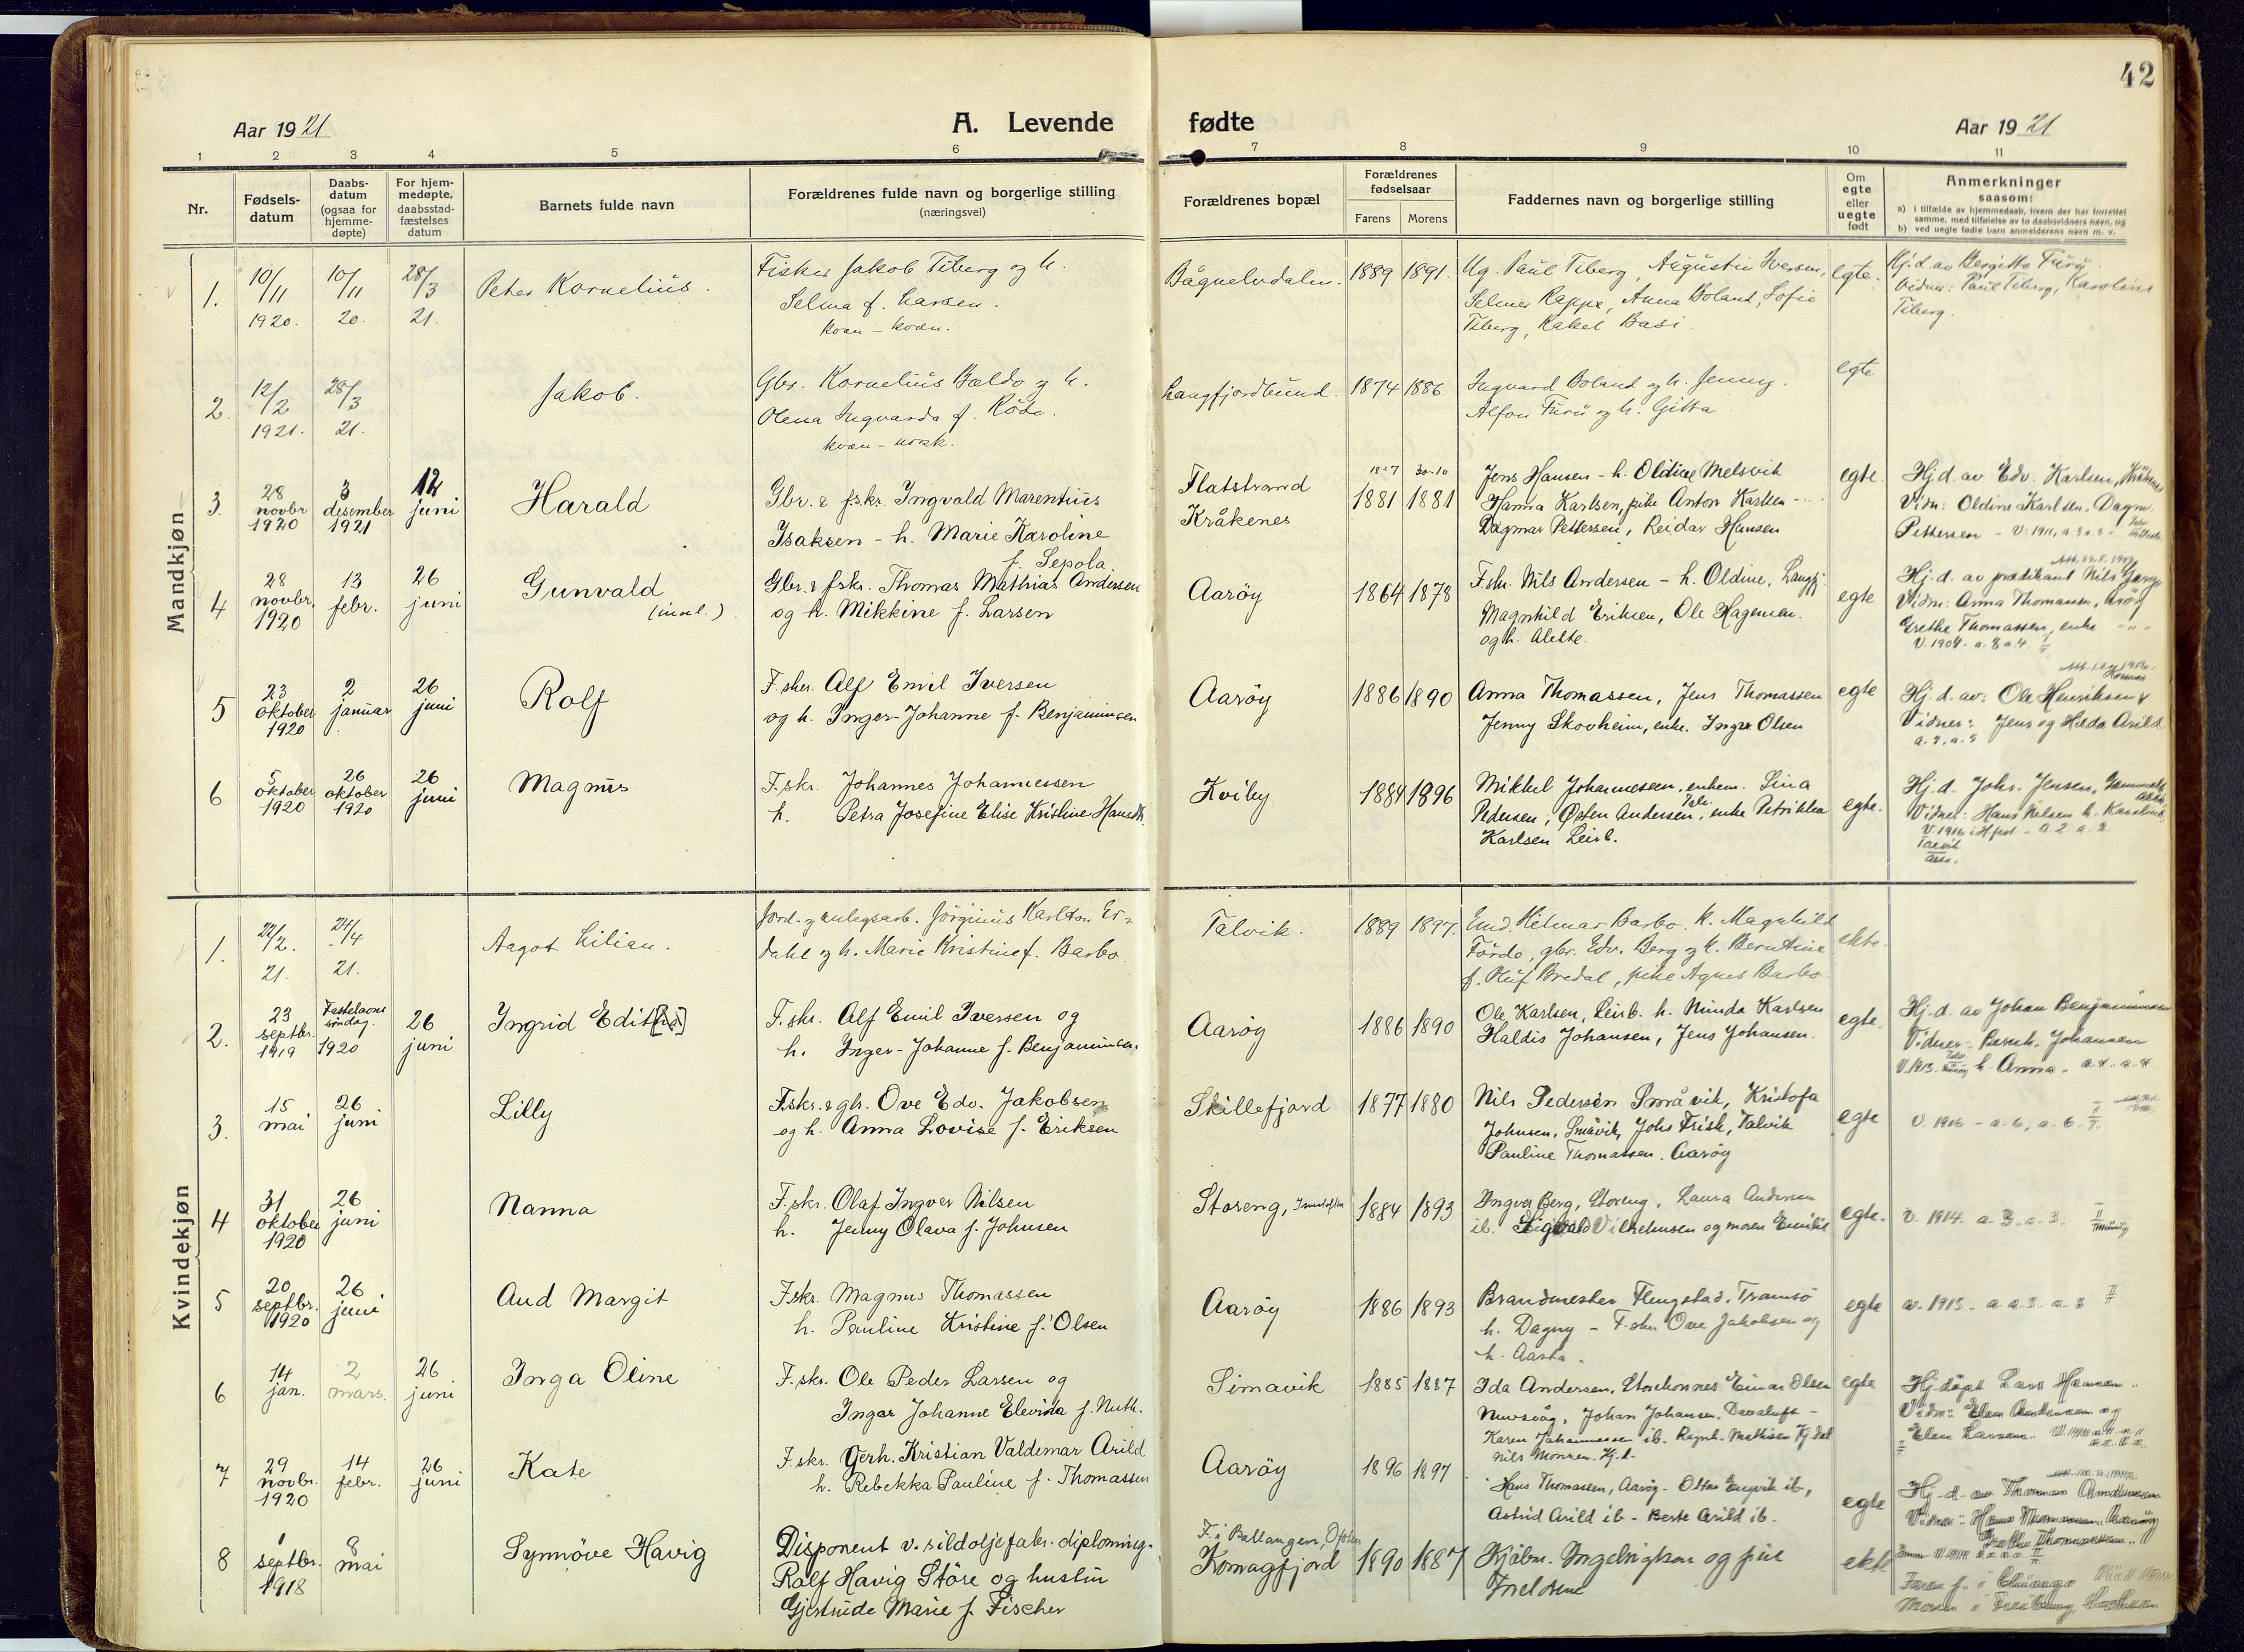 42
Aar 1921 A. Levende fødte Aar 1921
1 2 3 4 5 6 7 8 9 10 11
Nr.
Fødsels-
datum
Daabs-
datum
(ogsaa for
hjemme-
døpte)
For hjem-
medøpte,
daabsstad-
fæstelses
datum
Barnets fulde navn
Forældrenes fulde navn og borgerlige stilling
(næringsvei)
Forældrenes bopæl
Forældrenes
fødselsaar
Farens Morens
Faddernes navn og borgerlige stilling
Om
egte
eller
uegte
født
Anmerkninger
saasom:
a) i tilfælde av hjemmedaab, hvem der har forrettet
samme, med tilføielse av to daabsvidners navn, og
b) ved uegte fødte barn anmelderens navn m. v.
Mandkjøn
1. 10/11 1920. 10/11 20. 28/3 21. Peter Kornelius.
Fisker Jakob Tiberg og h.
Selma f. Larsen.
kvæn - kvæn.
1889 1891. Ug. Paul Tiberg, Augustin Iversen,
Selmer Rappe, Anna Boland, Sofie
Tiberg, Rakel Basi.
egte.
Hj.d. av Bergitte Furu.
Vidner: Paul Tiberg, Karoline
Tiberg.
2. 12/2 1921. 28/3 21. Jakob.
Gbr. Kornelius Bældo og h.
Olena Ingvarda f. Röde.
kvæn - norsk.
Langfjordbund. 1874 1886
Ingvard Boland og h. Jenny.
Alfon Furu og h. Gitta
egte
3. 28 novbr 1920 3 desember 1921 12 juni Harald
Gbr. & fskr. Ingvald Marentius
Isaksen - h. Marie Karoline
f. Sepola
Flatstrand
Kråkenes
1881 1881
Jens Hansen - h. Oldine Melsvik
Hanna Karlsen, pike Anton Karlsen
Dagmar Pettersen, Reidar Hansen
egte.
Hj.d. av Edv. Karlsen,
Vidn: Oldine Karlsen, Dagm.
Pettersen - V: 1911,
4 28 novbr. 1920 13 febr. 26 juni Gunvald
Gbr. & fskr. Thomas Mathias Andersen
og h. Mikkine f. Larsen
Aarøy 1864 1878
F.skr. Nils Andersen - h. Oldine, Langfj.
Magnhild Eriksen, Ole Hageman.
og h. Alette.
egte
Hj.d. av prædikant Nils
Vidn: Anna Thomassen, Arøy
Grethe Thomassen, enke
V. 1904. a. 8 a. 4.
5 23 oktober 1920 2 januar 26 juni Rolf
F.sker. Alf Emil Iversen
og h. Inger-Johanne f. Benjaminsen
Aarøy 1886 1890
Anna Thomassen, Jens Thomassen
Jenny Skovheim, enke. Inger Olsen
egte
Hj.d. av: Ole Henriksen &
Vidner: Jens og Hilda Arild
6 5 oktober 1920 26 oktober 1920 26 juni Magnus
F.skr. Johannes Johannessen
h. Petra Josefine Elise Kristine
Kviby 1884 1896
Mikkel Johannessen, enkem. Lina
Pedersen, Østen Andersen, enke Petrikka
Karlsen Leirb.
egte.
Hj.d. Johs. Jensen,
Vidner: Hans Nilsen h. Karoline
Talvik
Kvindekjøn
1. 22/2. 21. 24/4 21. Aagot Lilian.
Jord- og anlegsarb. Jørginius Karlton Er-
dahl og h. Marie Kristine f. Barbo.
Talvik. 1889 1897.
Hilmar Barbo. h. Magnhild
Förde, gbr. Edv. Berg og h. Berntine
f. Ruf Bredal, pike Agnes Barbo
ekte.
2. 23 septbr. 1919 Fastelavns søndag 1920 26 juni Ingrid Edit[h]
F.skr. Alf Emil Iversen og
h. Inger-Johanne f. Benjaminsen
Aarøy 1886 1890
Ole Karlsen, Leirb. h. Minda Karlsen
Haldis Johansen, Jens Johansen.
egte.
Hj.d. av Johan Benjaminsen
Vidner: Bernh. Johansen
V. 1913. h. Anna.
3. 15 mai 26 juni Lilly
F.skr. & gb. Ove Edv. Jakobsen
og h. Anna Lovise f. Eriksen
Skillefjord 1877 1880
Nils Pedersen Småvik, Kristofa
Johnsen, Småvik, Johs Frisk, Talvik
Pauline Thomassen. Aarøy
egte
V. 1906 - a. 6, a. 6.
4 31 oktober 1920 26 juni Nanna
F.skr. Olaf Ingver Nilsen
h. Jenny Olava f. Johnsen
Storeng, 1884 1893
Ingver Berg, Storeng, Laura Andersen
ib. Sigvald Vilhelmsen og moren Emilie
egte.
V. 1914. a. 3. a. 3.
5 20 septbr. 1920 26 juni Aud Margit
F.skr. Magnus Thomassen
h. Pauline Kristine f. Olsen
Aarøy 1886 1893
Brandmester Flengstad, Tromsö
h. Dagny - F.skr Ove Jakobsen og
h. Aasta.
egte
v. 1913. a. 3. a. 3
6 14 jan. 2 mars. 26 juni Inga Oline
F.skr. Ole Peder Larsen og
Inger Johanne Elevina f. Muth.
Simavik 1885 1887
Ida Andersen, Storkornes Einar Olsen
Nuvsvåg, Johan Johansen,
Karen Johannessen ib. Ragnh. Mathisen
Nils Monsen.
egte
Hj.døpt Lars Hansen.
Vidn: Elen Andersen og
Elen Larsen.
7 29 novbr. 1920 14 febr. 26 juni Kate
F.skr. Gerh. Kristian Valdemar Arild
h. Rebekka Pauline f. Thomassen
Aarøy 1896 1897
Hans Thomassen, Aarøy - Ottar Engvik ib,
Astrid Arild ib - Berte Arild ib.
egte
Hj-d- av Thomas Andersen
Vidner: Hans Thomassen. Aarøy
Grethe Thomassen.
8 1 septbr. 1918 8 mai Synnöve Havig
Disponent v. sildoljefabr. diploming.
Rolf Havig Störe og hustru
Gjertrude Marie f. Fischer
F. i Ballangen, Ofoten
Komagfjord 1890 1887
Kjøbm. Ingebrigtsen og frue
ekte
Faren f. i Chicago
Moren i